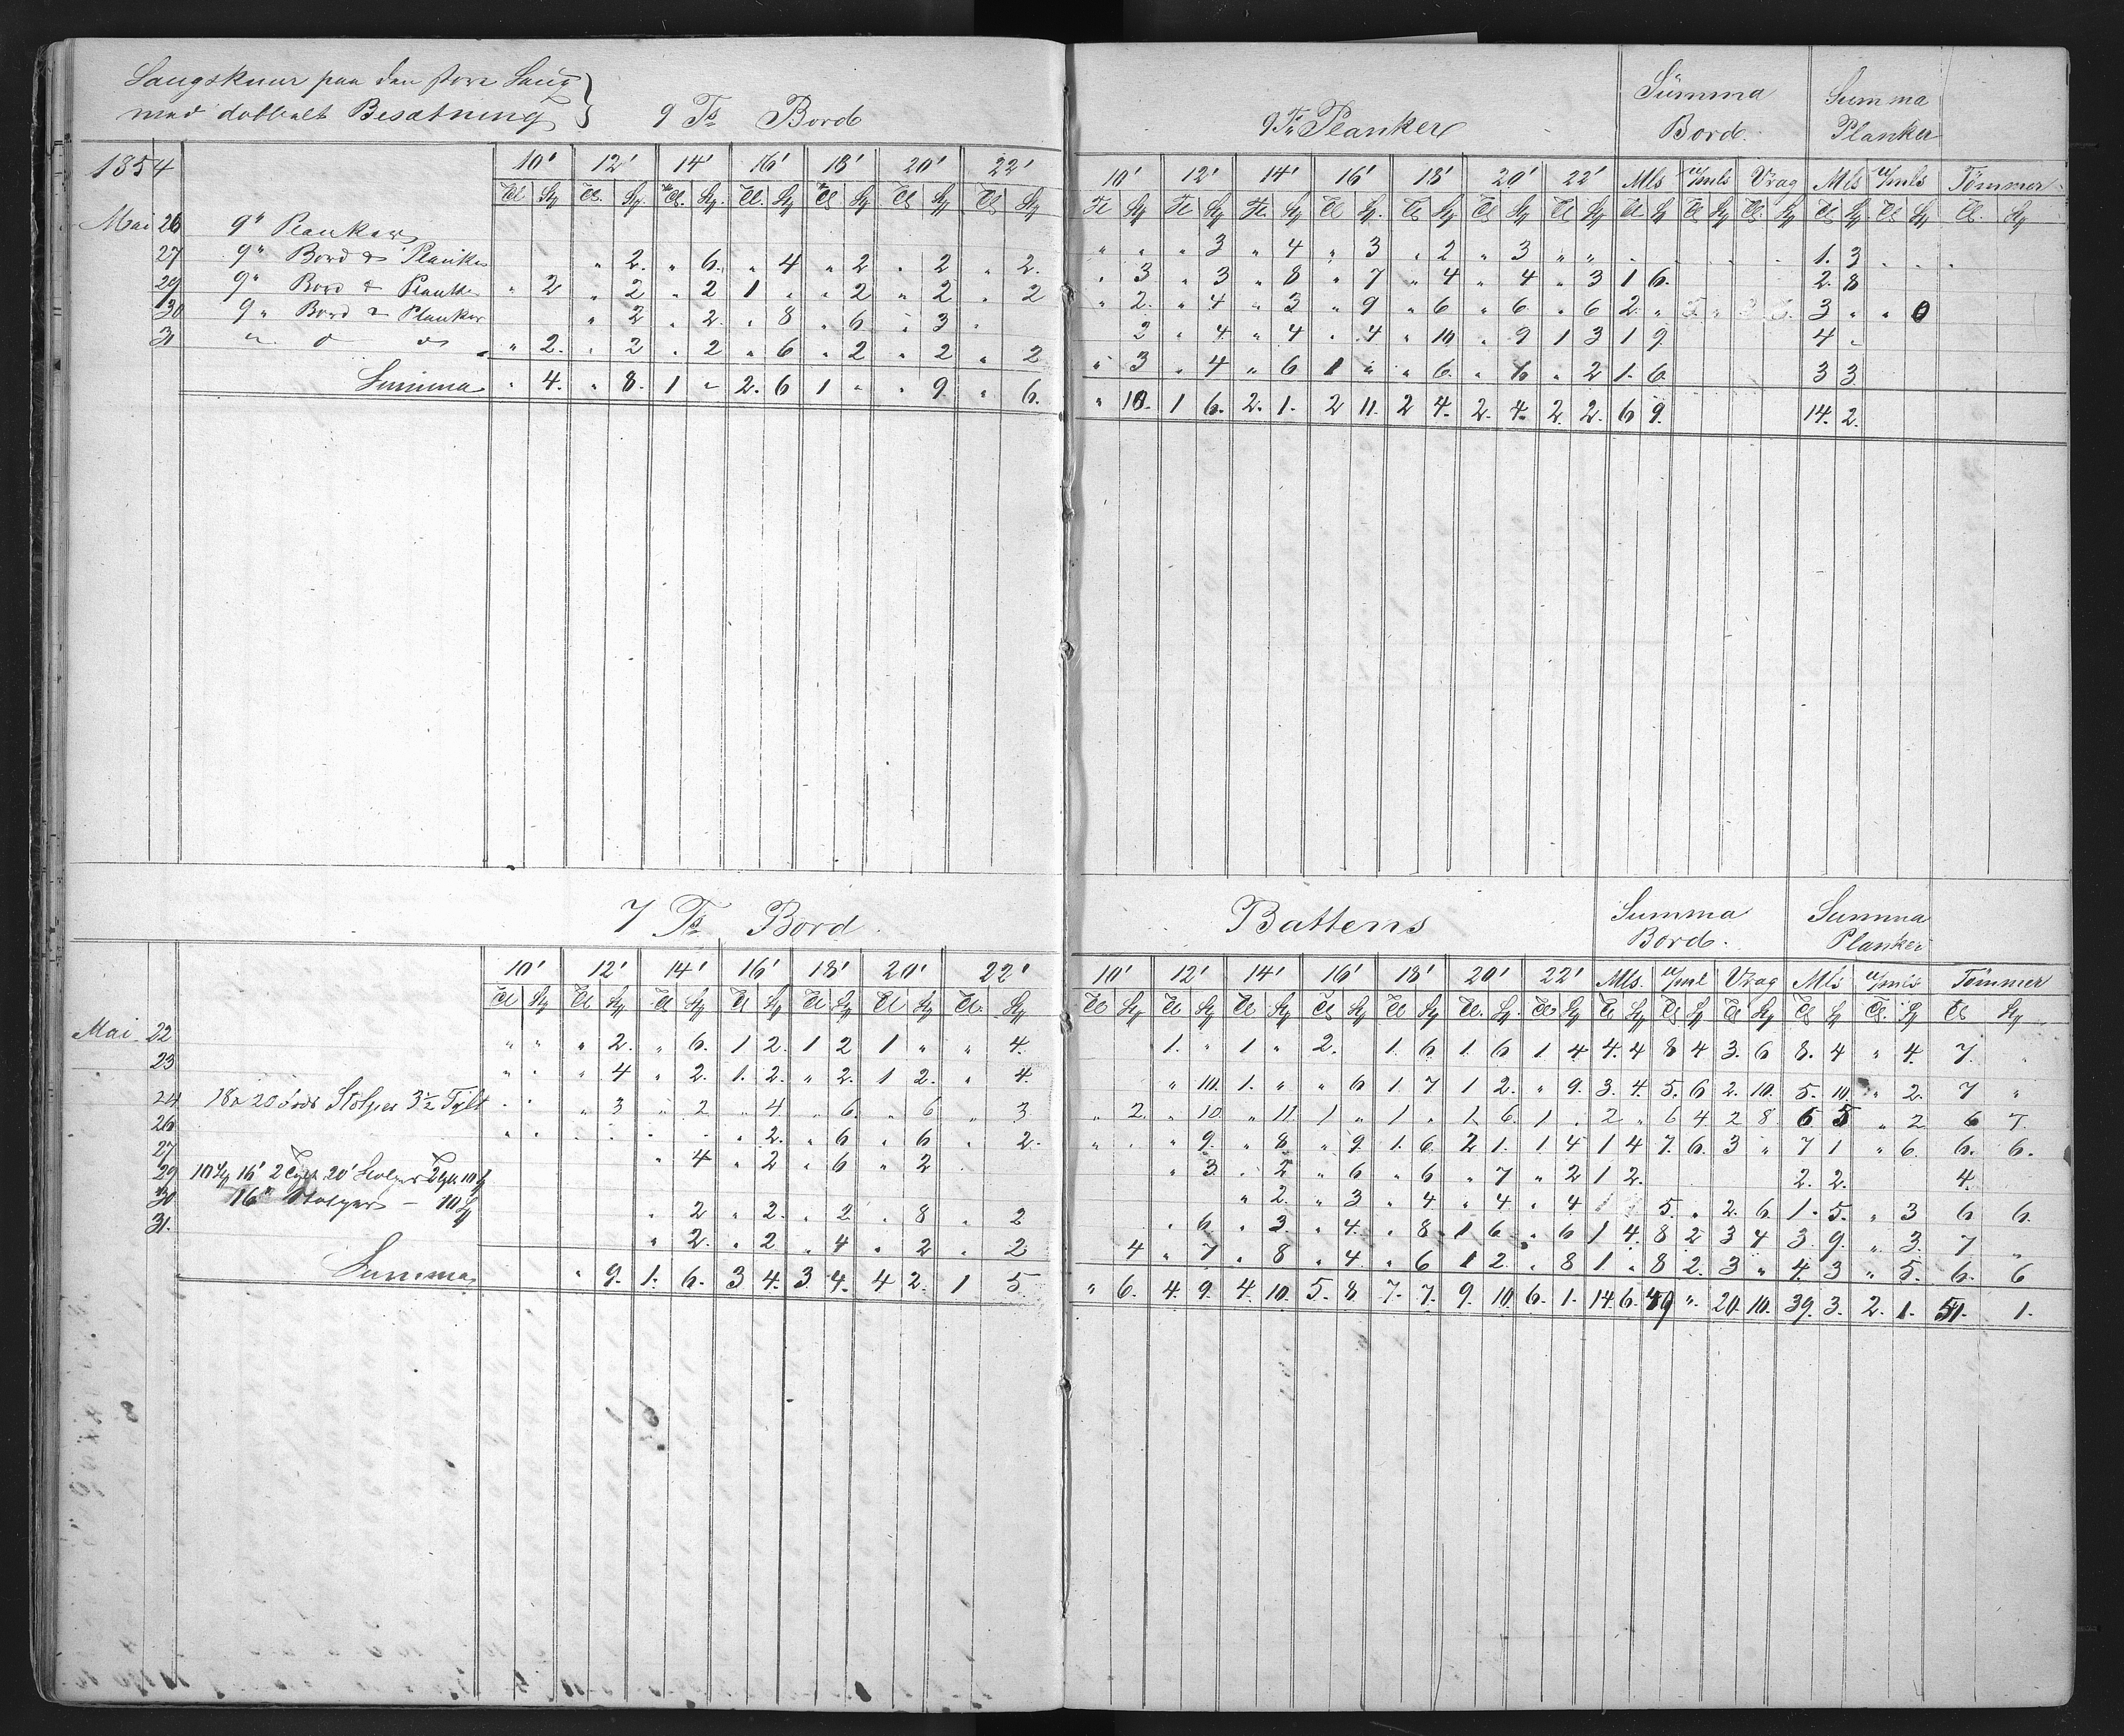 Saugskuur paa den store Saug
med dobbelt Besætning } 9 Ts Bord 9 Ts Planker Summa Bord Summa Planker
1854 10' 12' 14' 16' 18' 20' 22' 10' 12' 14' 16' 18' 20' 22' Mls u/mls Vrag Mls u/mls Tømmer
Tl St Tl St Tl St Tl St Tl St Tl St Tl St Tl St Tl St Tl St Tl St Tl St Tl St Tl St Tl St Tl St Tl St Tl St Tl St Tl St
Mai 26 9" Planker " " " 3 " 4 " 3 " 2 " 3 " " 1. 3
27 9" Bord & Planker " 2. " 6. " 4 " 2 " 2 " 2. " 3 " 3 " 8 " 7 " 4 " 4 " 3 1 6. 2. 8
29 9" Bord & Planker " 2 " 2 " 2 1 " " 2 " 2 " 2 " 2. " 4 " 3 " 9 " 6 " 6 " 6 2. " 3 " " 0
30 9" Bord & Planker " 2 " 2. " 8 " 6 " 3 " 2 " 4 " 4 " 4 " 10 " 9 1 3 1 9 4 "
31 " " " " 2. " 2 " 2 " 6 " 2 " 2 " 2 " 3 " 4 " 6 1 " " 6. " 6 " 2 1. 6. 3 3
Summa " 4. " 8. 1 " 2. 6 1 " " 9 " 6. " 10. 1 6. 2. 1. 2 11. 2 4. 2. 4. 2. 2. 6 9. 14. 2.
7 Ts Bord Battens Summa Bord. Summa Planker
10' 12' 14' 16' 18' 20' 22' 10' 12' 14' 16' 18' 20' 22' Mls. u/ml Vrag Mls u/mls Tømmer
Tl St Tl St Tl St Tl St Tl St Tl St Tl. St Tl St Tl St Tl St Tl St Tl St Tl. St Tl St Tl St Tl St Tl St Tl St Tl. St Tl St
Mai 22 " " " 2. " 6. 1 2. 1 2 1 " " 4. 1. " 1 " 2. 1. 6 1. 6 1 4 4. 4 8 4 3. 6 8. 4 " 4. 7. "
23 " " " 4 " 2. 1. 2. " 2. 1 2. " 4. " 10. 1. " " 6 1. 7 1 2. " 9. 3. 4. 5. 6 2. 10. 5. 10. " 2. 7 "
24 18 a 20 fods Stolper 3½ Tylt " " " 3 " 2 " 4 " 6. " 6 " 3 " 2. " 10 " 11. 1 " 1 " 1. 6. 1 " 2 " 6 4 2 8 6 5 " 2 6 7.
26 " " " " " " " 2. " 6 " 6 " 2. " " " 9. " 8 " 9. 1. 6 2 1. 1 4 1 4 7. 6. 3 " 7 1 " 6. 6. 6.
27 " 4 " 2 " 6 " 2 " 3. " 2 " 6 " 6 " 7 " 2 1 2. 2. 2. 4.
29 10 St 16' 2 Tylt 20' Stolper 2 Tylt 10 St " 2. " 3 " 4 " 4 " 4 5. " 2. 6. 1. 5. " 3 6 6.
30 16" Stolper – 10 St " 2 " 2. " 2. " 8 " 2 " 6 " 3. " 4. " 8 1 6 " 6 1 4. 8 2 3 4 3. 9. " 3. 7 "
31. " 2. " 2 " 4 " 2 " 2 4 " 7 " 8 " 4. " 6 1 2. " 8 1. " 8 2. 3 " 4. 3 " 5. 6. 6
Summa " 9. 1. 6. 3 4. 3. 4. 4 2. 1 5. " 6. 4. 9. 4. 10. 5. 8. 7. 7. 9. 10. 6. 1. 14. 6. 49 ". 20. 10. 39. 3. 2. 1. 51. 1.